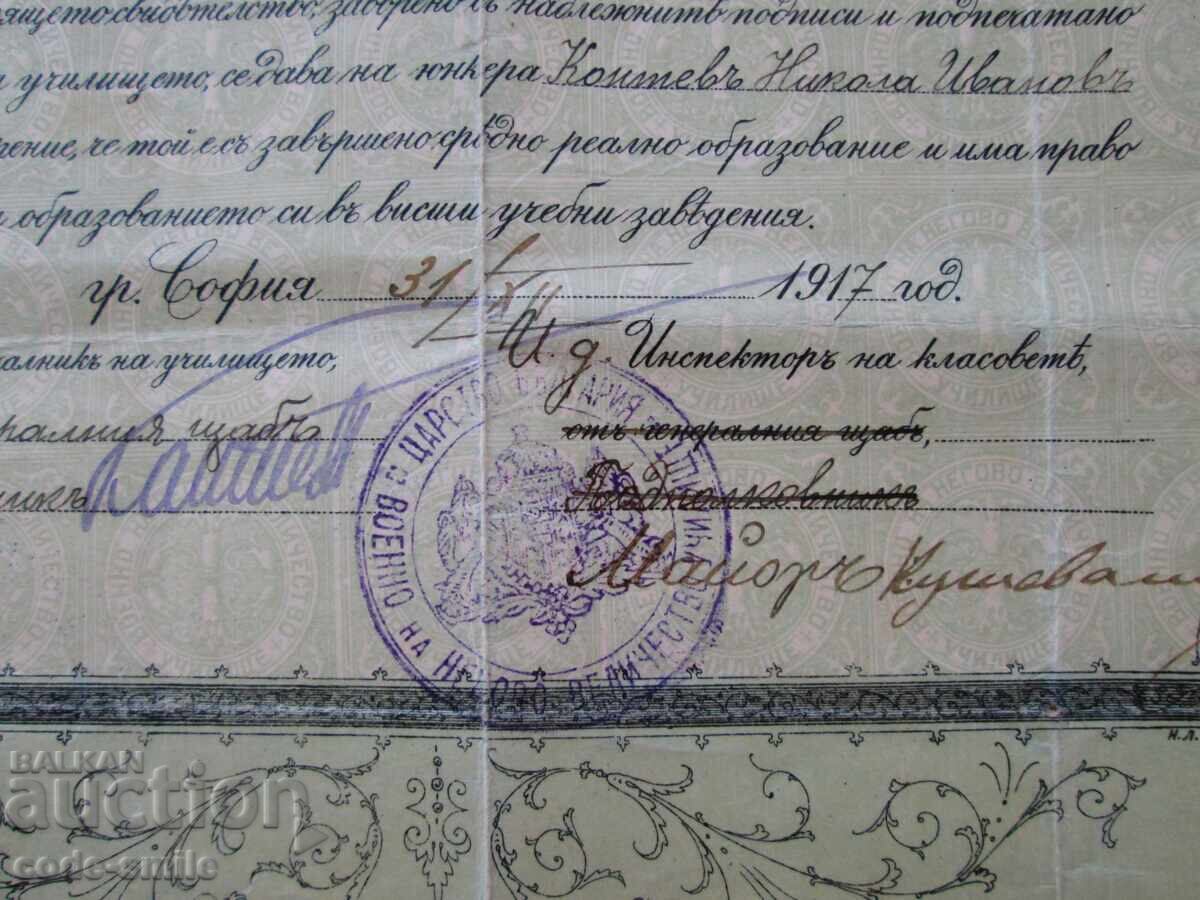 свидѣтелство, заверено съ надлежнитѣ подписи и подпечатано
училището, се дава на юнкера Контевъ Никола Ивановъ
че той е съ завършено срѣдно реално образование и има право
образованието си въ висши учебни заведения.
гр. София 31/XII 1917 год.
на училището, И. д. Инспекторъ на класоветѣ,
щабъ отъ генералния щабъ,
Подполковникъ
Майоръ
ЦАРСТВО БЪЛГАРИЯ ВОЕННО НА НЕГОВО ВЕЛИЧЕСТВО УЧИЛИЩЕ
Н.Л.
BALKAN
auction
code-smile